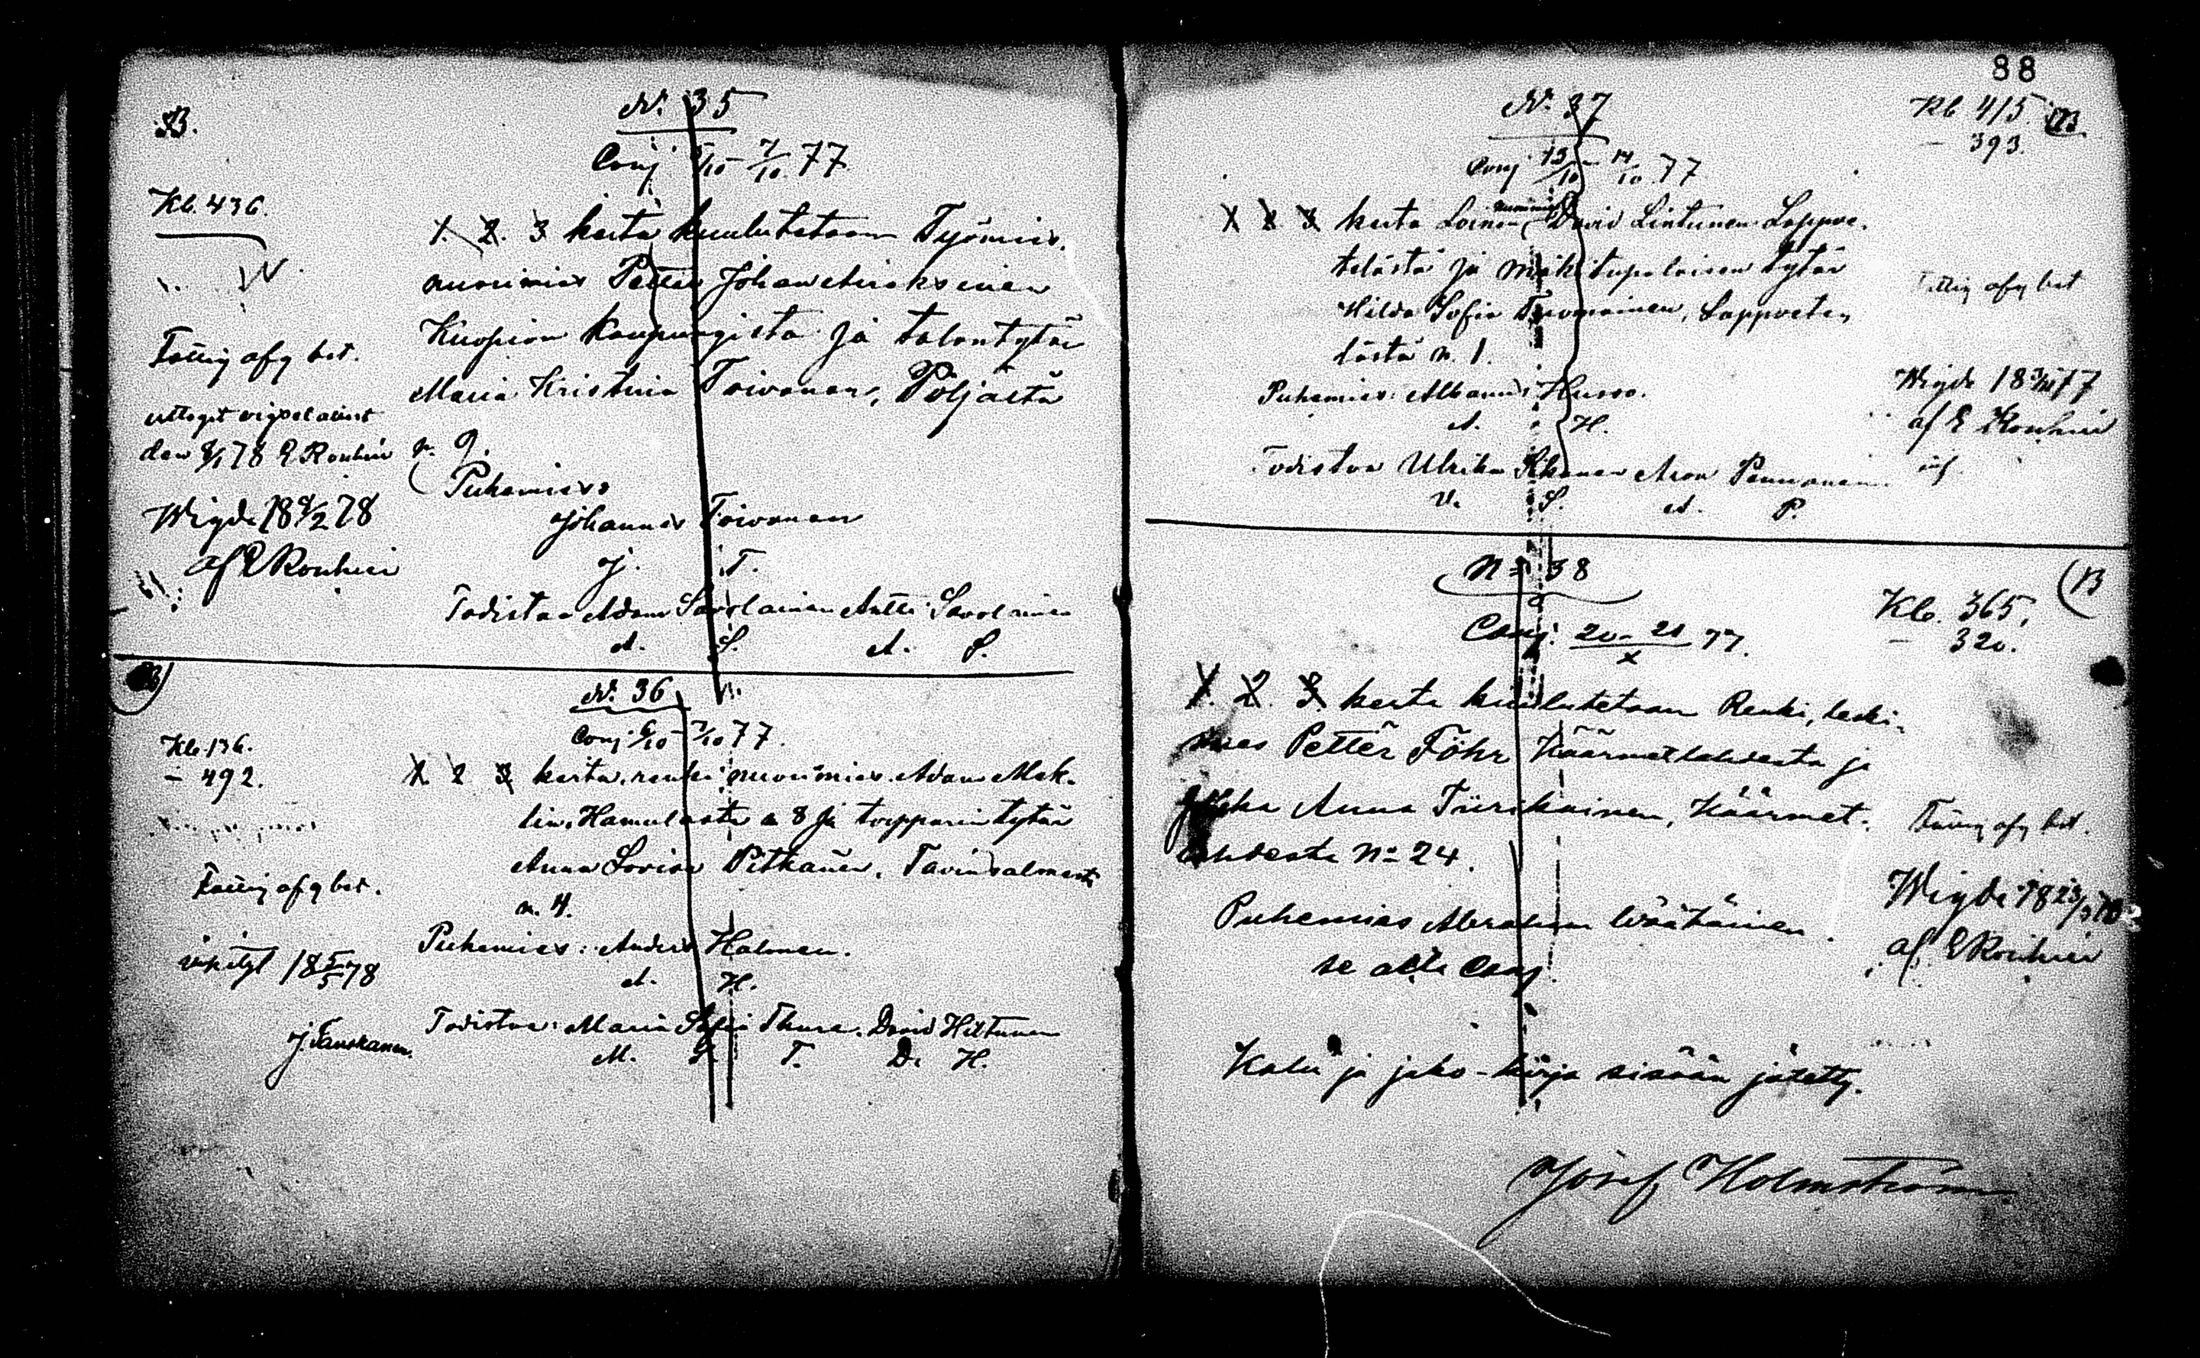 B.
N: 35
Conj. 6/10 - 7/10 77
Kb. 436.
1. 2. 3 kerta kuulutetaan Työmies,
nuorimies Petter Johan Miraksinen
Kuopion kaupungista ja talontytär
Maria Kristina Toivonen, Pöljästä
n. 9.
Fattig afg bet.
uttaget vigselattest
den 8/1 78 E Rouhin
Wigde 18 9/2 78
af E Rouhin
Puhemies
Johannes Toivonen
J. T.
Todistaa Adam Savolainen Antti Savolainen
A. S. A. S.
N: 36
Conj 6/10 - 7/10 77.
Kb. 136.
- 492.
1 2 3 kerta, renki nuorimies Adam Mek-
lin, Hamulasta n 8 ja torpparin tytär
Anna Lovisa Pitkänen, Tavinsalmesta
n. 4.
Fattig afg bet.
vihityt 18 5/5 78
J. Tanskanen.
Puhemies: Anders Halonen.
A. H.
Todistaa: Maria Sofia Thura. David Hiltunen
M. S. T. D. H.
88
N: 37
Kb 415
- 393.
B
Conj 13/10 - 14/10 77
1 2 3 kerta Loinen nuorimies David Lintunen Lappve-
telästä ja mäkitupalaisen tytär
Hilda Sofia Toivonainen, Lappvete-
lästä n. 1.
Fattig afg bet
Puhemies: Husso.
A. H.
Wigde 18 77
af E Rouhin
Todistaa Ulrika Aron Pennanen
U. S. A. P.
N: 38
B
Kb. 365.
- 320.
Conj: 20 - 21/X 77.
1. 2. 3 kerta kuulutetaan Renki, leski-
mies Petter Föhr Käärmelahdesta ja
Anna Tiirikainen, Käärmet-
lahdesta No 24.
Fattig afg bet.
Wigde 18 23/
af E Rouhin
Puhemies Abraham Wäätäinen.
se Conj
Kalu ja jako-kirja sisään jätetty.
Josef Holmström.